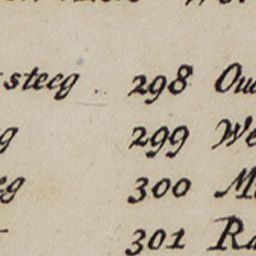 steeg 298 Oud
g 299 We
eg 300 M
301 Ra